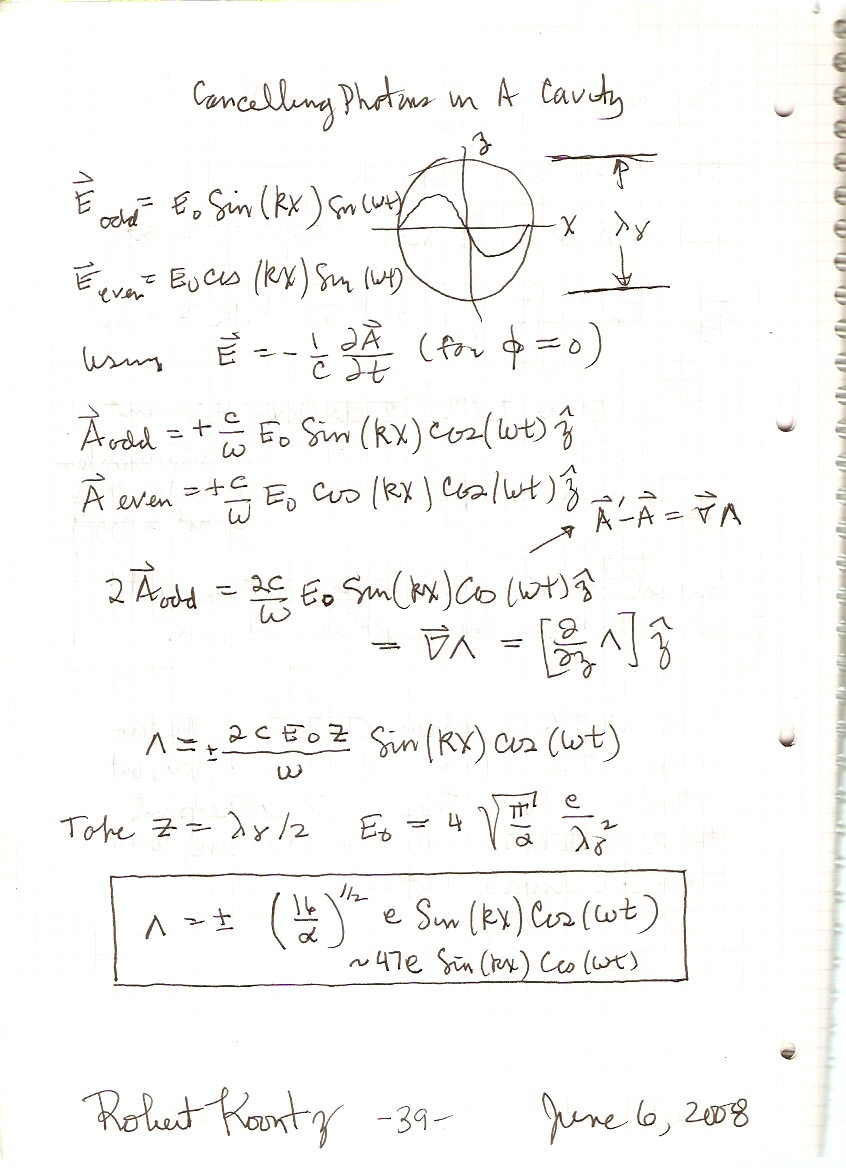 Cancelling Photons in A Cavity
z
E⃗ odd = E₀ Sin (kx) Sin (ωt)
x λγ
E⃗ even = E₀ cos (kx) Sin (ωt)
Using E⃗ = - 1/c ∂A⃗/∂t (for ϕ = 0)
A⃗ odd = + c/ω E₀ Sin (kx) Cos (ωt) ẑ
A⃗ even = + c/ω E₀ Cos (kx) Cos (ωt) ẑ
A⃗' - A⃗ = ∇⃗Λ
2 A⃗ odd = 2c/ω E₀ Sin (kx) Cos (ωt) ẑ
= ∇⃗Λ = [∂/∂z Λ] ẑ
Λ = ± 2 c E₀ z/ω Sin (kx) Cos (ωt)
Take z = λγ/2 E₀ = 4 √(π/α) e/λγ²
Λ = ± (16/α)^1/2 e Sin (kx) Cos (ωt)
~ 47e Sin (kx) Cos (ωt)
Robert Koontz -39- June 6, 2008